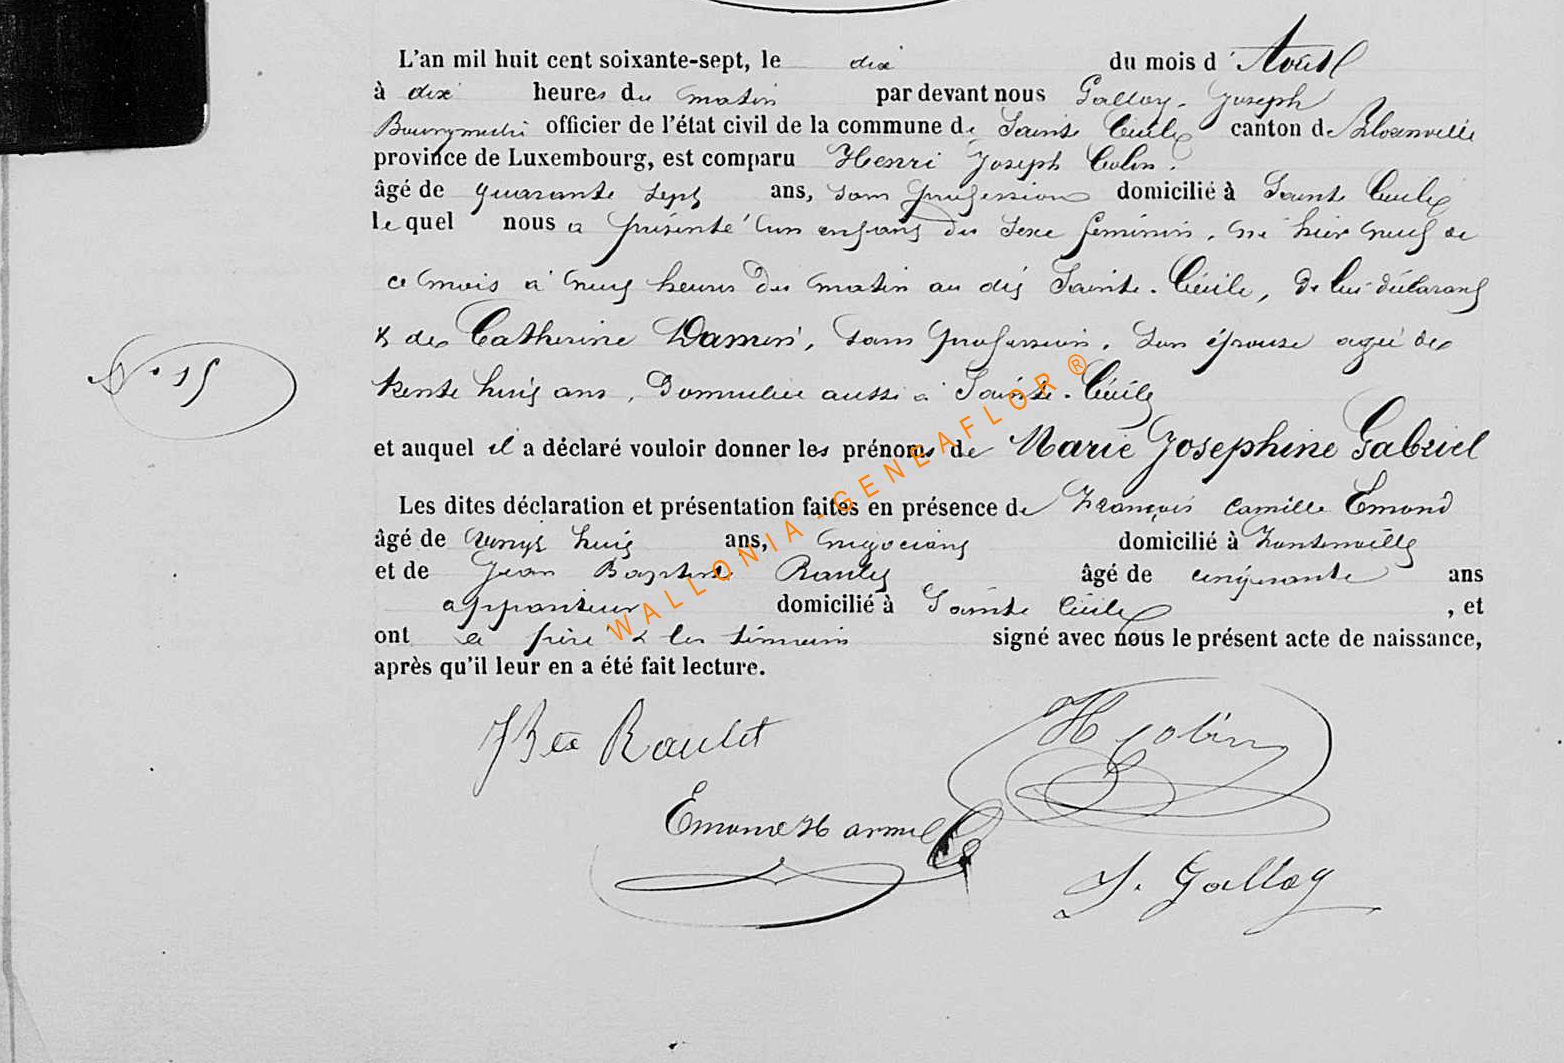 L'an mil huit cent soixante-sept, le dix du mois d'Août
à dix heures du matin par devant nous Galloy Joseph
Bourgmestre officier de l'état civil de la commune de Sainte Cécile canton de Florenville
province de Luxembourg, est comparu Henri Joseph Colin.
âgé de quarante sept ans, sans profession domicilié à Sainte Cécile
lequel nous a présenté un enfant du sexe féminin, né hier neuf de
ce mois à neuf heures du matin au dit Sainte-Cécile, de lui déclarant
& de Catherine, sans profession, son épouse agée de
trente huit ans, Domiciliée aussi à Sainte-Cécile
N° 15
et auquel il a déclaré vouloir donner les prénoms de Marie Josephine Gabriel
Les dites déclaration et présentation faites en présence de François Camille Emond
âgé de vingt huit ans, négociant domicilié à Fontenoille
et de Jean Baptiste Raulet âgé de cinquante ans
appariteur domicilié à Sainte Cécile, et
ont le père & les témoins signé avec nous le présent acte de naissance,
après qu'il leur en a été fait lecture.
WALLONIA-GENEAFLOR®
JBte Raulet
H J Colin
Emond
J. Galloy